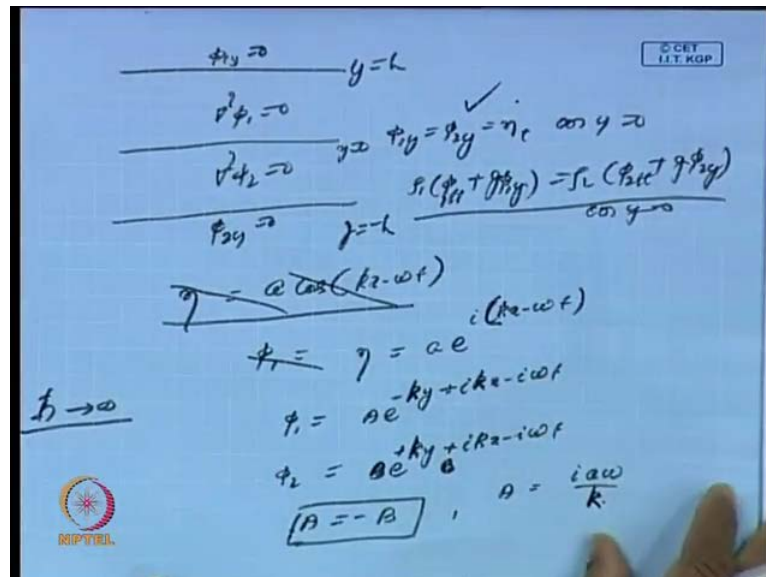 © CET
I.I.T. KGP
φ₁y = 0
y = h
∇²φ₁ = 0
y=0 φ₁y = φ₂y = ηₜ on y = 0
∇²φ₂ = 0
ρ₁(φ₁ₜₜ + gφ₁y) = ρ₂(φ₂ₜₜ + gφ₂y)
on y=0
φ₂y = 0 y = -h
η = a cos(kx - ωt)
φ₁ = η = a e^{i(kx - ωt)}
h → ∞
φ₁ = A e^{-ky + ikx - iωt}
φ₂ = B e^{+ky + ikx - iωt}
A = -B , A = iaω/k
NPTEL